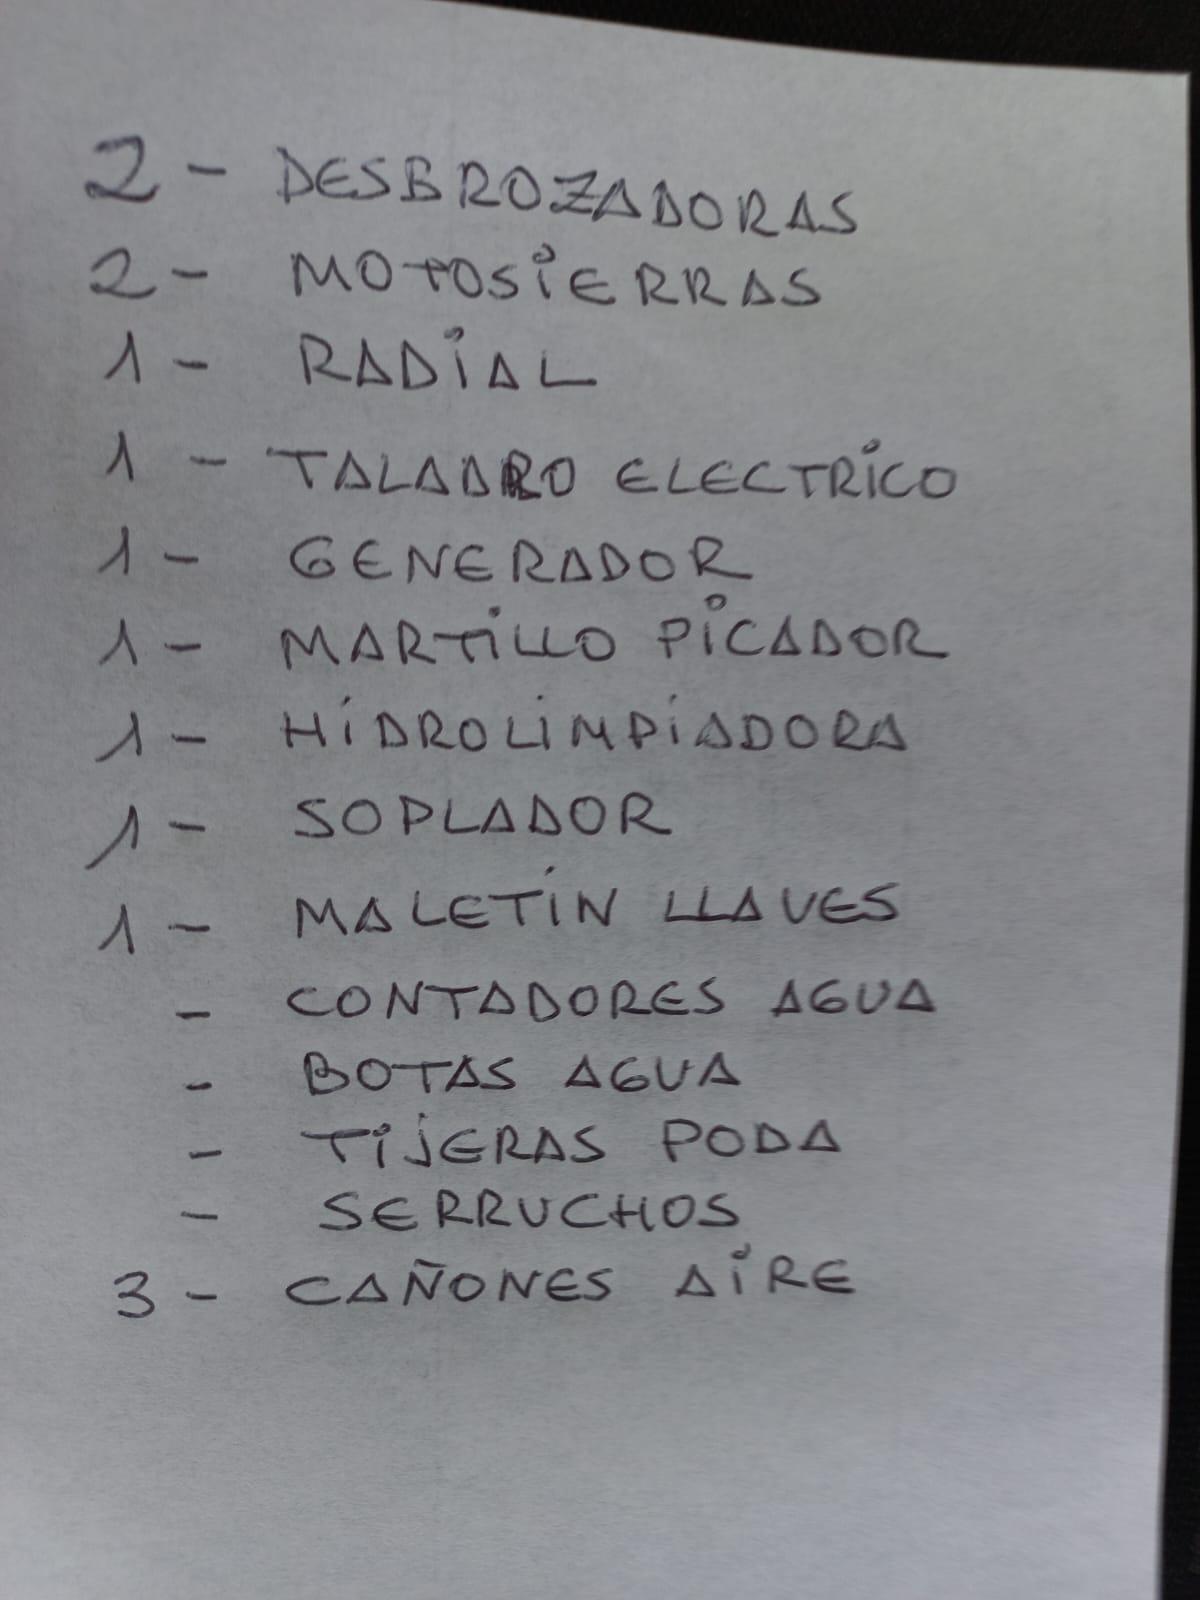 2 - DESBROZADORAS
2 - MOTOSIERRAS
1 - RADIAL
1 - TALADRO ELECTRICO
1 - GENERADOR
1 - MARTILLO PICADOR
1 - HIDROLIMPIADORA
1 - SOPLADOR
1 - MALETÍN LLAVES
- CONTADORES AGUA
- BOTAS AGUA
- TIJERAS PODA
- SERRUCHOS
3 - CAÑONES AIRE